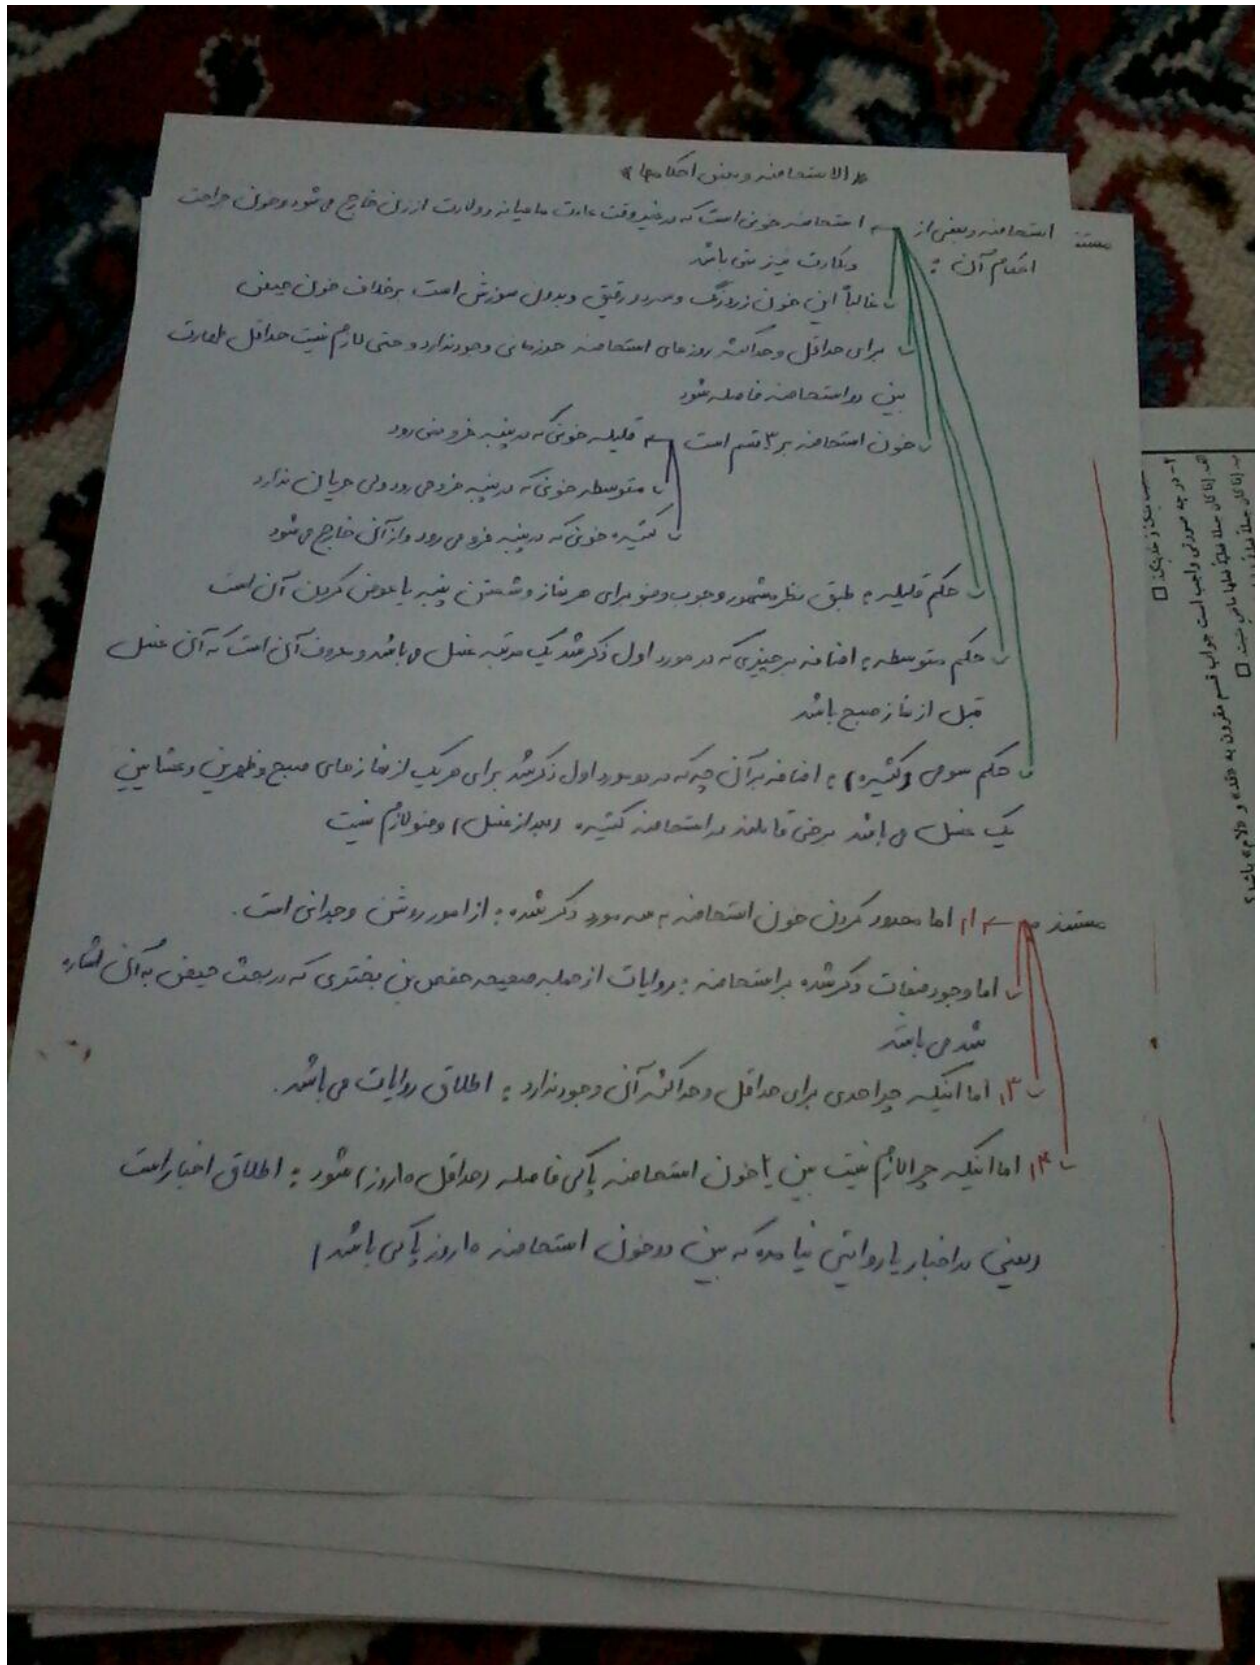 «الاستحاضه و بعض احکامها»
استحاضه و بعضی از احکام آن :
استحاضه خونی است که در غیر وقت عادت ماهیانه و ولادت از زن خارج می شود و خون جراحت
و بکارت نیز نمی باشد
غالباً این خون زردرنگ و سرد و رقیق و بدون سوزش است برخلاف خون حیض
برای حداقل و حداکثر روزهای استحاضه حد زمانی وجود ندارد و حتی لازم نیست حداقل طهارت
بین دو استحاضه فاصله شود
خون استحاضه بر ۳ قسم است
قلیله خونی که در پنبه فرو نمی رود
متوسطه خونی که در پنبه فرو می رود ولی جریان ندارد
کثیره خونی که در پنبه فرو می رود و از آن خارج می شود
حکم قلیله : طبق نظر مشهور وجوب وضو برای هر نماز و شستن پنبه یا عوض کردن آن است
حکم متوسطه : اضافه بر چیزی که در مورد اول ذکر شد یک مرتبه غسل می باشد و معروف آن است که آن غسل
قبل از نماز صبح باشد
حکم سومی (کثیره) : اضافه بر آن چه که در دو مورد اول ذکر شد برای هر یک از نمازهای صبح و ظهرین و عشایین
یک غسل می باشد برخی قائلند در استحاضه کثیره (بعد از غسل) وضو لازم نیست
مستند
۱) اما محدود کردن خون استحاضه به سه مورد ذکر شده : از امور روشن وجدانی است.
اما وجود صفات ذکر شده بر استحاضه : روایات از جمله صحیحه حفص بن بختری که در بحث حیض به آن اشاره
شد می باشد
۳) اما اینکه چرا حدی برای حداقل و حداکثر آن وجود ندارد : اطلاق روایات می باشد.
۴) اما اینکه چرا لازم نیست بین ۲ خون استحاضه پاکی فاصله (حداقل ۱۰ روز) شود : اطلاق اخبار است
(یعنی در اخبار یا روایتی نیامده که بین دو خون استحاضه ۱۰ روز پاکی باشد)
۲- در چه صورتی واجب است جواب قسم مقرون به «قد» و «لام» باشد؟